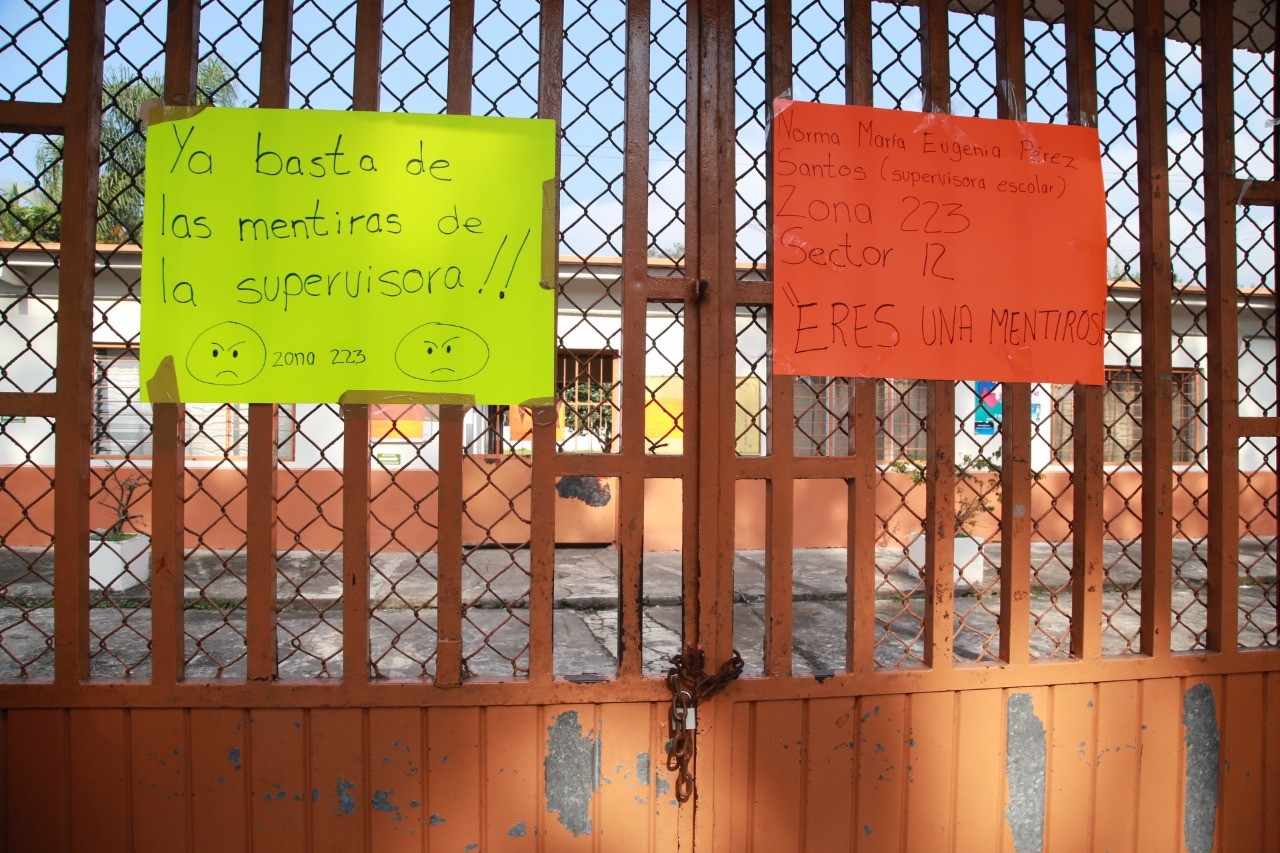 Ya basta de
las mentiras de
la supervisora!!
zona 223
Norma María Eugenia Pérez
Santos (supervisora escolar)
Zona 223
Sector 12
"ERES UNA MENTIROSA